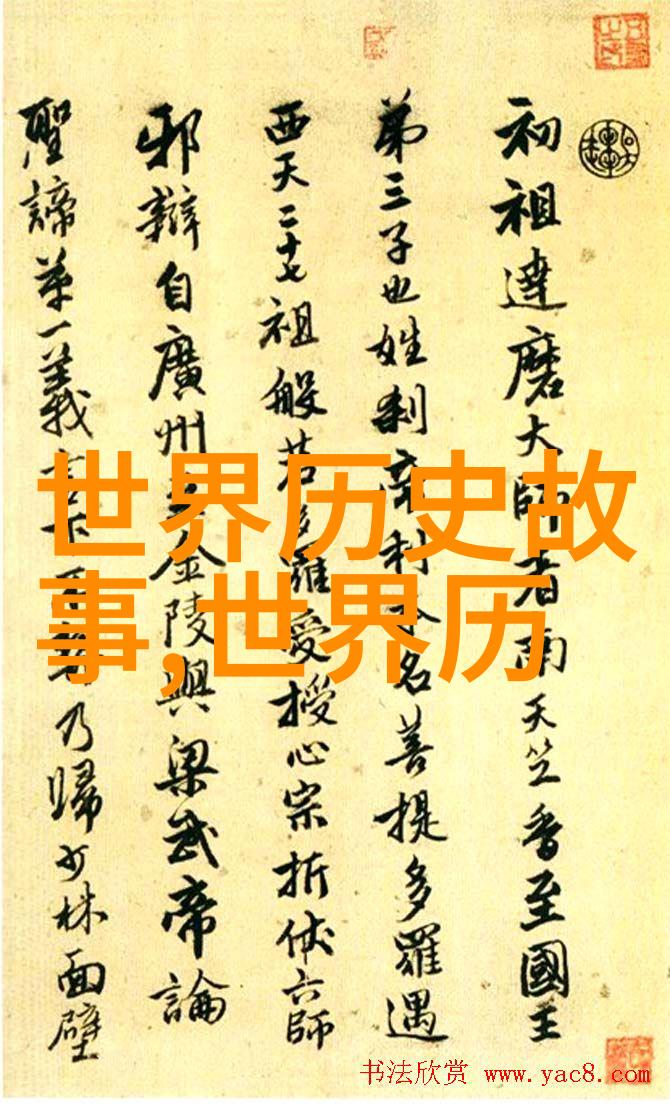 初祖達磨大師者南天竺香至國王
弟三子也姓刹帝利本名菩提多羅遇
西天二十七祖般若多羅受授心宗折伏六師
邪辯自廣州至金陵與梁武帝論
聖諦苐一義乃歸少林面壁
世界历史故
事,世界历
书法欣赏 www.yac8.com